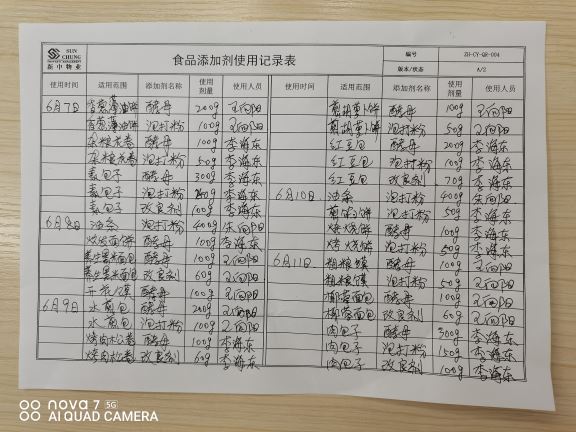 SUN CHUNG
新中物业
食品添加剂使用记录表
编号 ZH-CY-QR-004
版本/状态 A/2
使用时间 适用范围 添加剂名称 使用剂量 使用人员 使用时间 适用范围 添加剂名称 使用剂量 使用人员
6月7日 香葱薄油饼 酵母 200g 王向阳 胡萝卜饼 酵母 100g 王向阳
香葱薄油饼 泡打粉 100g 王向阳 胡萝卜饼 泡打粉 50g 王向阳
杂粮花卷 酵母 100g 李海东 红豆包 酵母 200g 李海东
杂粮花卷 泡打粉 50g 李海东 红豆包 泡打粉 100g 李海东
素包子 酵母 300g 李海东 红豆包 改良剂 70g 李海东
素包子 泡打粉 李海东 6月10日 油条 泡打粉 400g 朱向阳
素包子 改良剂 100g 李海东 饼 泡打粉 50g 李海东
6月8日 油条 泡打粉 400g 朱向阳 烧饼 酵母 100g 李海东
发面饼 酵母 100g 李海东 烧饼 泡打粉 50g 李海东
面包 酵母 100g 王向阳 6月11日 粗粮馍 酵母 100g 王向阳
面包 改良剂 60g 王向阳 粗粮馍 泡打粉 50g 王向阳
开花馍 酵母 100g 王向阳 椰蓉面包 酵母 100g 王向阳
6月9日 水煎包 酵母 200g 王向阳 椰蓉面包 改良剂 60g 王向阳
水煎包 泡打粉 100g 王向阳 肉包子 酵母 300g 李海东
烤肉松卷 酵母 100g 李海东 肉包子 泡打粉 150g 李海东
烤肉松卷 改良剂 60g 李海东 肉包子 改良剂 100g 李海东
nova 7 5G
AI QUAD CAMERA